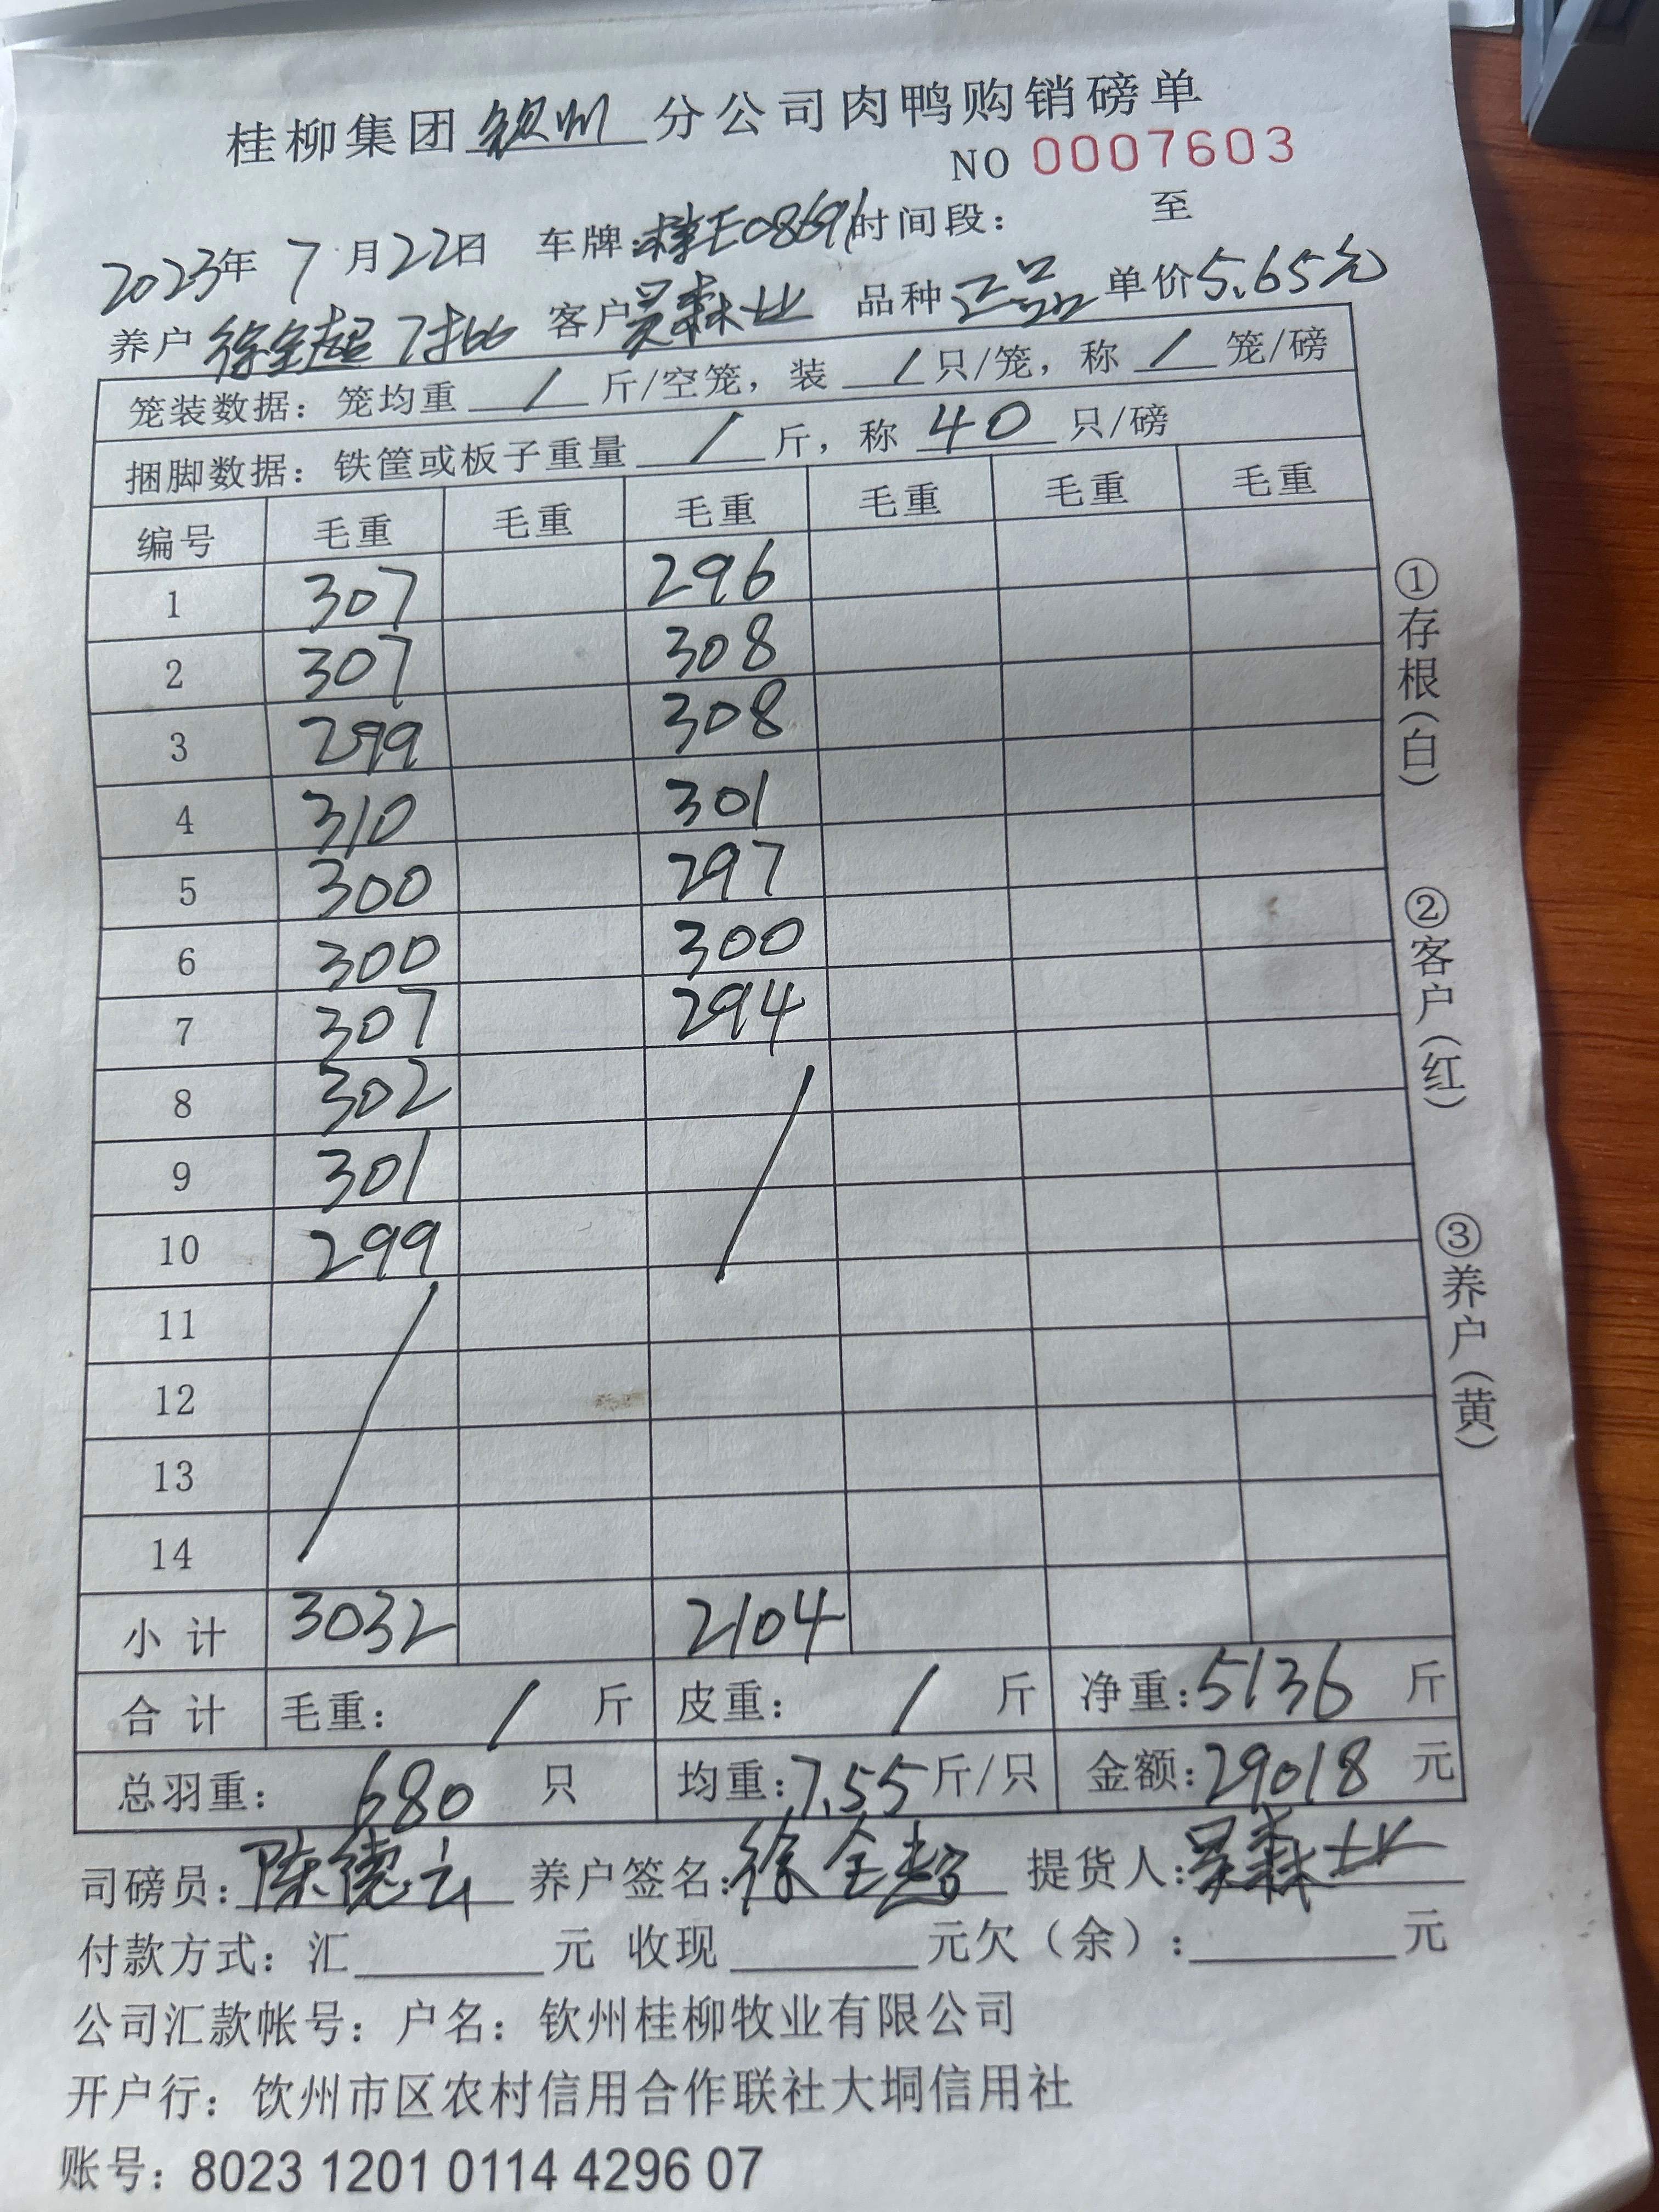 桂柳集团钦州分公司肉鸭购销磅单
NO 0007603
2023年 7月22日 车牌:桂E08691时间段: 至
养户 徐全超 客户吴森业 品种正品 单价5.65元
笼装数据: 笼均重 / 斤/空笼, 装 / 只/笼, 称 / 笼/磅
捆脚数据: 铁筐或板子重量 / 斤, 称 40 只/磅
编号 毛重 毛重 毛重 毛重 毛重 毛重
1 307 296
2 307 308
3 299 308
4 310 301
5 300 297
6 300 300
7 307 294
8 302 /
9 301
10 299
11 /
12
13
14
小计 3032 2104
合计 毛重: / 斤 皮重: / 斤 净重:5136 斤
总羽重: 680 只 均重:7.55斤/只 金额:29018 元
司磅员:陈德云 养户签名:徐全超 提货人:吴森业
付款方式: 汇 元 收现 元欠（余）: 元
公司汇款帐号: 户名: 钦州桂柳牧业有限公司
开户行: 饮州市区农村信用合作联社大垌信用社
账号: 8023 1201 0114 4296 07
①存根（白）
②客户（红）
③养户（黄）